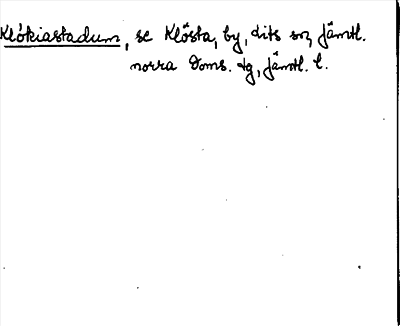 Klókiastadum, se Klösta, by, dits sn, Jämtl.
norra Doms. dg, Jämtl. l.